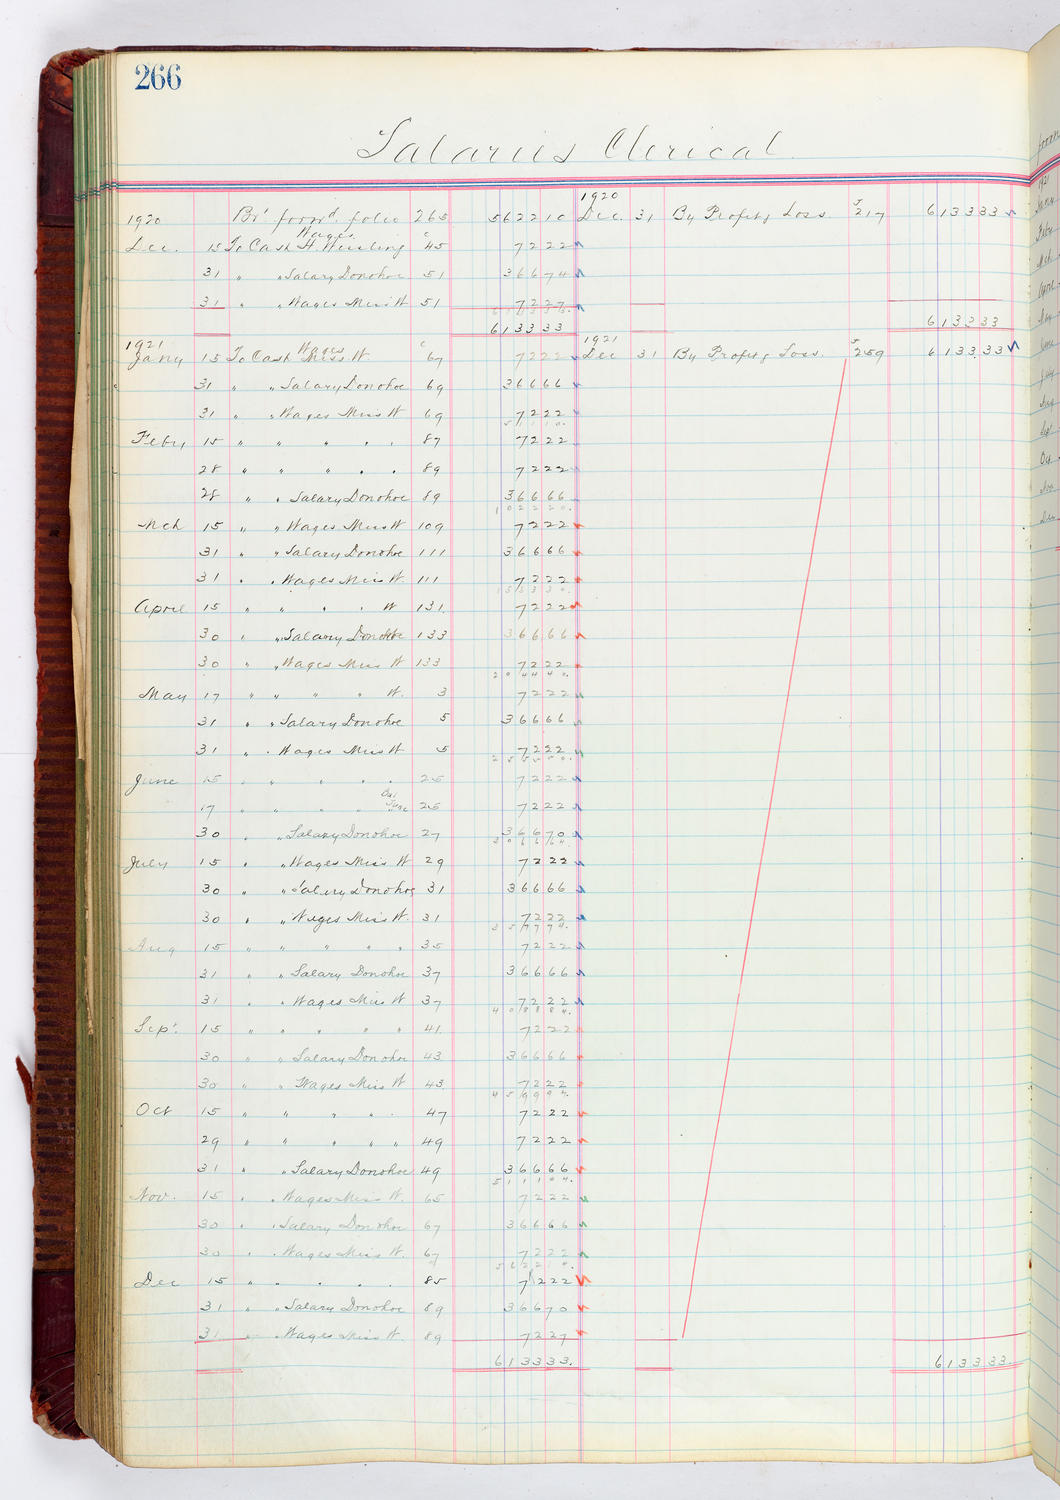 266
Salaries Clerical
1920
Brt forwd. folio 265 562210 Dec. 31 By Profit & Loss. J 217 613333
1920
Wages
Dec. 15 To Cash H c 45 7222
31 " " Salary Donohoe 51 36674
31 " " Wages Miss W 51 7227
613333.
613333 613333
1921 1921
Wages
Jany 15 To Cash Miss W. c 67 7222 Dec 31 By Profit & Loss. J 259 613333
31 " " Salary Donohoe 69 36666
31 " " Wages Miss W 69 7222
51110.
Feby 15 " " " " " 87 7222
28 " " " " " 89 7222
28 " " Salary Donohoe 89 36666
102220.
Mch 15 " " Wages Miss W 109 7222
31 " " Salary Donohoe 111 36666
31 " " Wages Miss W. 111 7222
153330.
April 15 " " " " W 131. 7222
30 " " Salary Donohoe 133 36666
30 " " Wages Miss W 133 7222
204440.
May 17 " " " " W. 3 7222
31 " " Salary Donohoe 5 36666
31 " " Wages Miss W 5 7222
255550.
June 15 " " " " " 25 7222
17 " " " " Bal June 25 7222
30 " " Salary Donohoe 27 36670
306664.
July 15 " " Wages Miss W 29 7222
30 " " Salary Donohoe 31 36666
30 " " Wages Miss W. 31 7222
357774.
Aug 15 " " " " " 35 7222
31 " " Salary Donohoe 37 36666
31 " " Wages Miss W 37 7222
408884.
Sept. 15 " " " " " 41. 7222
30 " " Salary Donohoe 43 36666
30 " " Wages Miss W 43. 7222
459994.
Oct 15 " " " " " 47 7222
29 " " " " " 49 7222
31 " " Salary Donohoe 49 36666
511104.
Nov. 15 " " Wages Miss W. 65 7222
30 " " Salary Donohoe 67 36666
30 " " Wages Miss W. 67 7222
562210.
Dec 15 " " " " " 85 7222
31 " " Salary Donohoe 89 36670
31 " " Wages Miss W. 89 7227
613333. 613333.